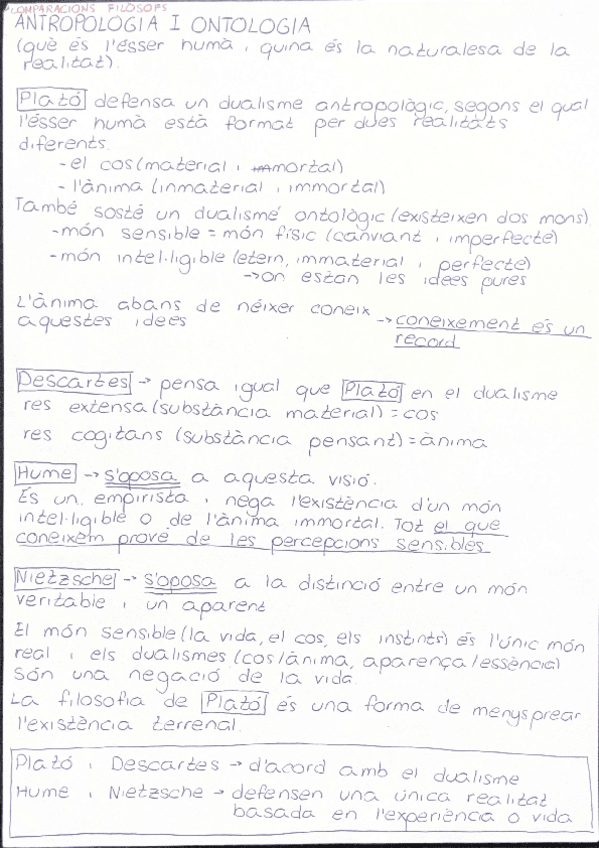 COMPARACIONS FILÒSOFS
ANTROPOLOGIA I ONTOLOGIA
(què és l'ésser humà i quina és la naturalesa de la
realitat).
Plató defensa un dualisme antropològic, segons el qual
l'ésser humà està format per dues realitats
diferents.
- el cos (material i mortal)
- l'ànima (inmaterial i immortal)
També sosté un dualisme ontològic (existeixen dos mons).
- món sensible = món físic (canviant i imperfecte)
- món intel·ligible (etern, immaterial i perfecte)
→ on estan les idees pures
L'ànima abans de néixer coneix
aquestes idees → coneixement és un
record
Descartes → pensa igual que Plató en el dualisme
res extensa (substància material) = cos
res cogitans (substància pensant) = ànima
Hume → s'oposa a aquesta visió.
És un empirista i nega l'existència d'un món
intel·ligible o de l'ànima immortal. Tot el que
coneixem prové de les percepcions sensibles
Nietzsche → s'oposa a la distinció entre un món
veritable i un aparent
El món sensible (la vida, el cos, els instints) és l'únic món
real i els dualismes (cos/ànima, aparença/essència)
són una negació de la vida.
La filosofia de Plató és una forma de menysprear
l'existència terrenal.
Plató i Descartes → d'acord amb el dualisme
Hume i Nietzsche → defensen una única realitat
basada en l'experiència o vida